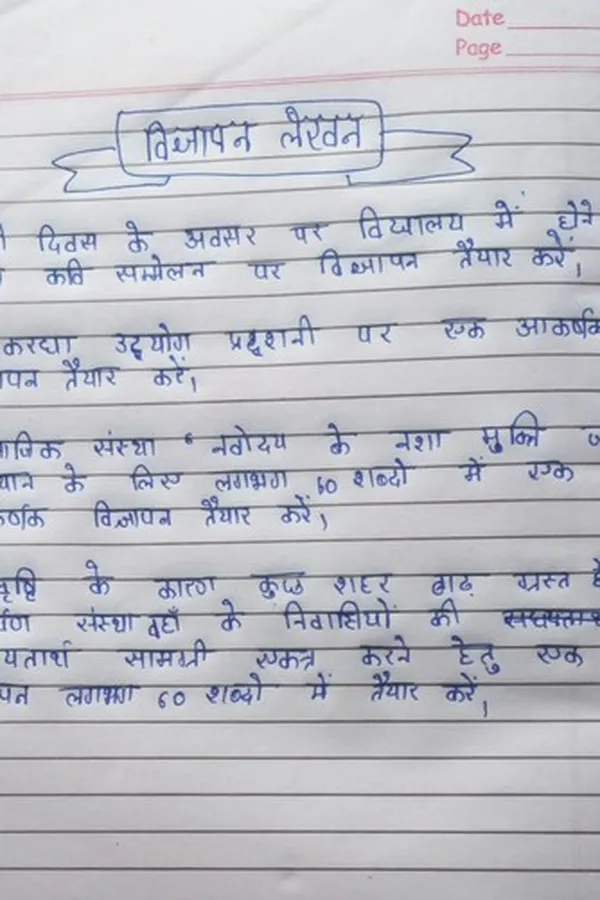 Date
Page
विज्ञापन लेखन
दिवस के अवसर पर विद्यालय में होने
कवि सम्मेलन पर विज्ञापन तैयार करें।
करघा उद्योग प्रदर्शनी पर एक आकर्षक
पन तैयार करें।
संस्था " नवोदय के नशा मुक्ति ज
यान के लिए लगभग 60 शब्दो में एक
र्षक विज्ञापन तैयार करें।
वृष्टि के कारण कुछ शहर बाढ़ ग्रस्त है
संस्था वहाँ के निवासियों की
यतार्थ सामग्री एकत्र करने हेतु एक
पन लगभग 60 शब्दो में तैयार करें।